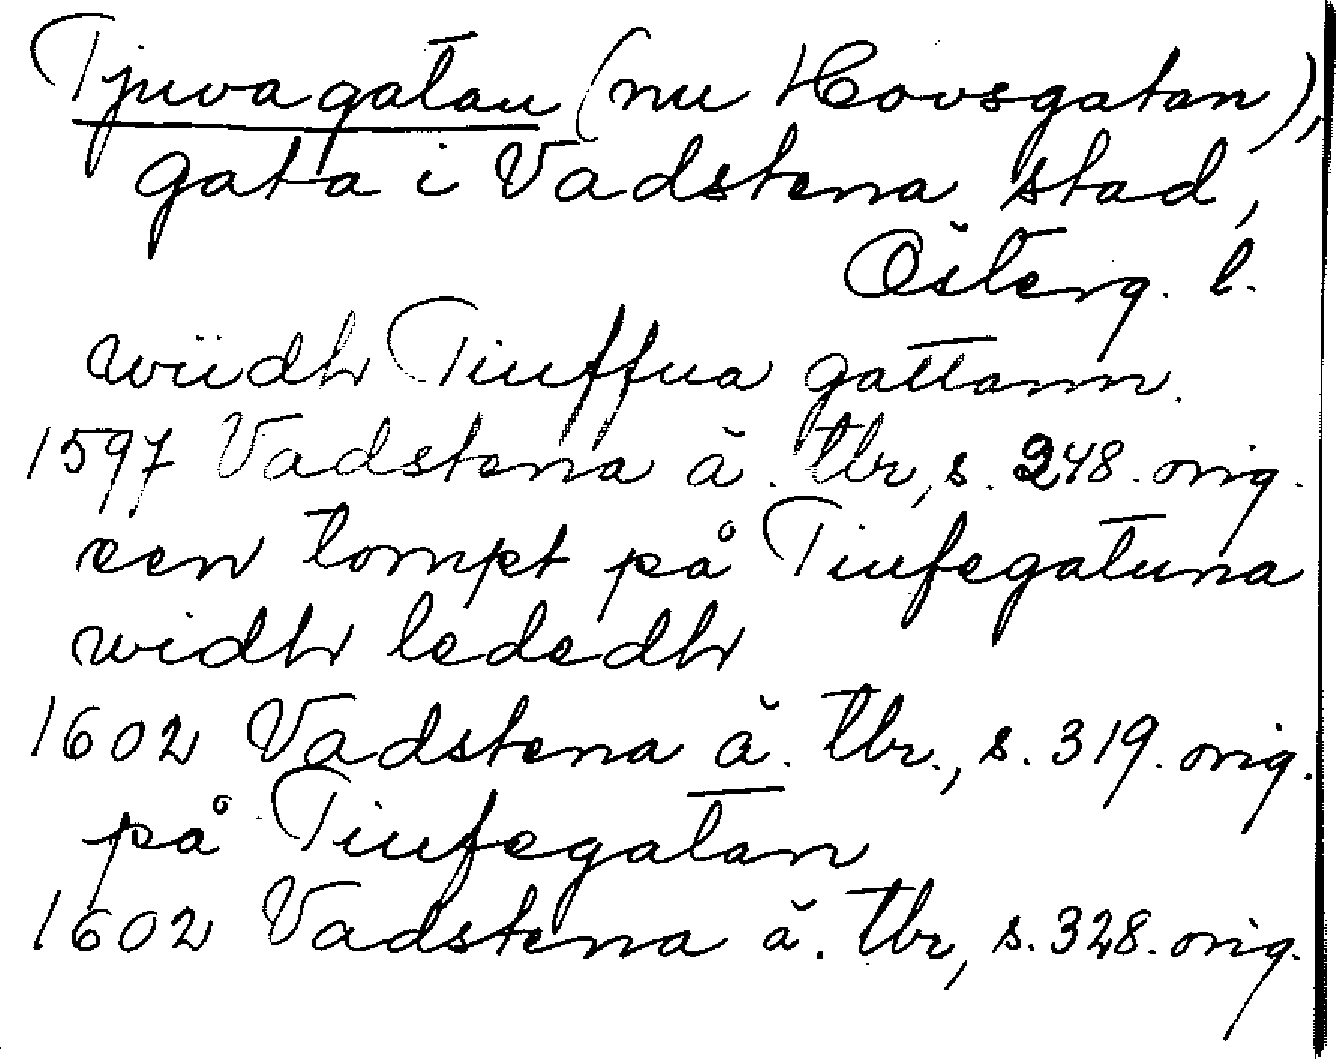 Tjuvagatan (nu Hovsgatan),
gata i Vadstena stad,
Österg. l.
wiidh Tiuffua gattann.
1597 Vadstena ä. tbr, s. 248. orig.
een tompt på Tiufegatuna
widh lededh
1602 Vadstena ä. tbr., s. 319. orig.
på Tiufegatan
1602 Vadstena ä. tbr, s. 328. orig.